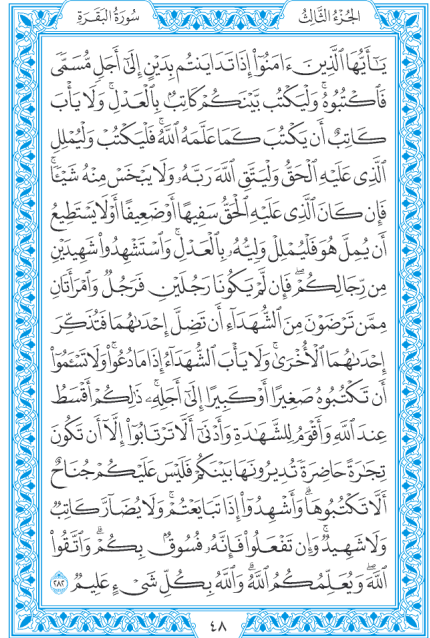 الجُزْءُ الثَّالِثُ
سُورَةُ البَقَرَةِ
يَٰٓأَيُّهَا ٱلَّذِينَ ءَامَنُوٓا۟ إِذَا تَدَايَنتُم بِدَيْنٍ إِلَىٰٓ أَجَلٍ مُّسَمًّى
فَٱكْتُبُوهُ ۚ وَلْيَكْتُب بَّيْنَكُمْ كَاتِبٌۢ بِٱلْعَدْلِ ۚ وَلَا يَأْبَ
كَاتِبٌ أَن يَكْتُبَ كَمَا عَلَّمَهُ ٱللَّهُ ۚ فَلْيَكْتُبْ وَلْيُمْلِلِ
ٱلَّذِى عَلَيْهِ ٱلْحَقُّ وَلْيَتَّقِ ٱللَّهَ رَبَّهُۥ وَلَا يَبْخَسْ مِنْهُ شَيْـًٔا ۚ
فَإِن كَانَ ٱلَّذِى عَلَيْهِ ٱلْحَقُّ سَفِيهًا أَوْ ضَعِيفًا أَوْ لَا يَسْتَطِيعُ
أَن يُمِلَّ هُوَ فَلْيُمْلِلْ وَلِيُّهُۥ بِٱلْعَدْلِ ۚ وَٱسْتَشْهِدُوا۟ شَهِيدَيْنِ
مِن رِّجَالِكُمْ ۖ فَإِن لَّمْ يَكُونَا رَجُلَيْنِ فَرَجُلٌ وَٱمْرَأَتَانِ
مِمَّن تَرْضَوْنَ مِنَ ٱلشُّهَدَآءِ أَن تَضِلَّ إِحْدَىٰهُمَا فَتُذَكِّرَ
إِحْدَىٰهُمَا ٱلْأُخْرَىٰ ۚ وَلَا يَأْبَ ٱلشُّهَدَآءُ إِذَا مَا دُعُوا۟ ۚ وَلَا تَسْـَٔمُوٓا۟
أَن تَكْتُبُوهُ صَغِيرًا أَوْ كَبِيرًا إِلَىٰٓ أَجَلِهِۦ ۚ ذَٰلِكُمْ أَقْسَطُ
عِندَ ٱللَّهِ وَأَقْوَمُ لِلشَّهَٰدَةِ وَأَدْنَىٰٓ أَلَّا تَرْتَابُوٓا۟ ۖ إِلَّآ أَن تَكُونَ
تِجَٰرَةً حَاضِرَةً تُدِيرُونَهَا بَيْنَكُمْ فَلَيْسَ عَلَيْكُمْ جُنَاحٌ
أَلَّا تَكْتُبُوهَا ۗ وَأَشْهِدُوٓا۟ إِذَا تَبَايَعْتُمْ ۚ وَلَا يُضَآرَّ كَاتِبٌ
وَلَا شَهِيدٌ ۚ وَإِن تَفْعَلُوا۟ فَإِنَّهُۥ فُسُوقٌۢ بِكُمْ ۗ وَٱتَّقُوا۟
ٱللَّهَ ۖ وَيُعَلِّمُكُمُ ٱللَّهُ ۗ وَٱللَّهُ بِكُلِّ شَىْءٍ عَلِيمٌ ٢٨٢
٤٨